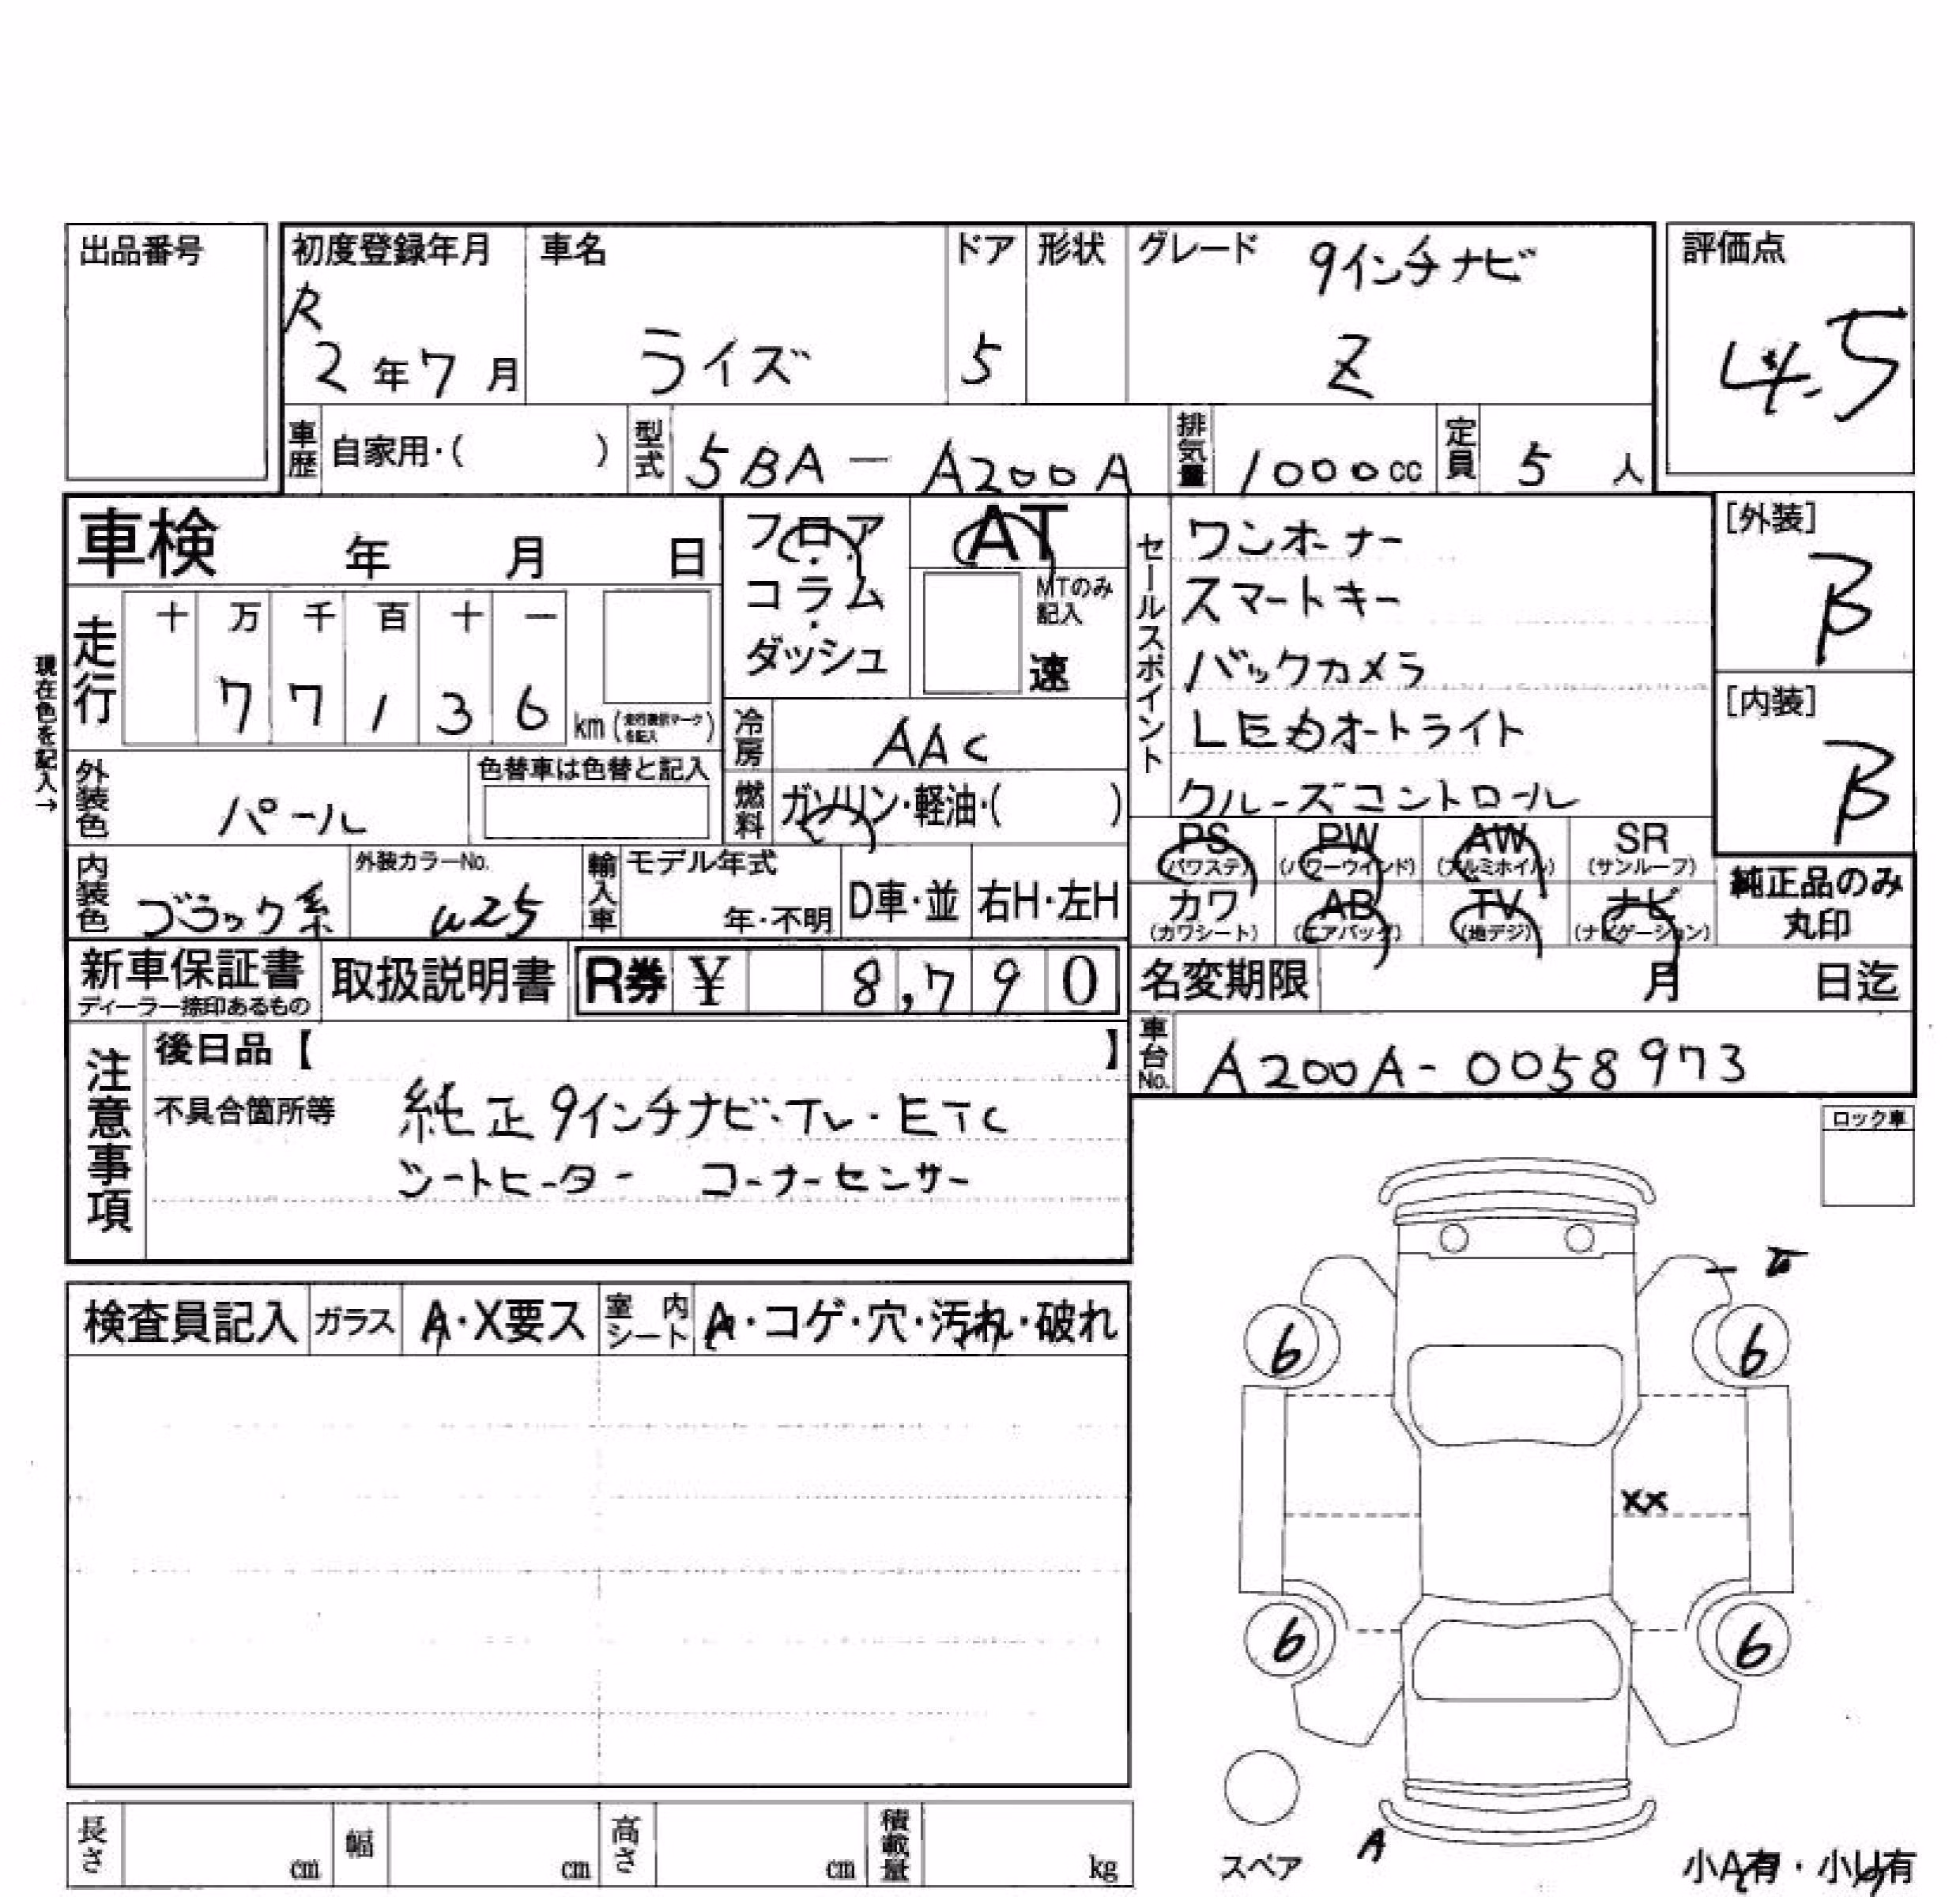 出品番号
初度登録年月 車名 ドア 形状 グレード 9インチナビ 評価点
R
2年7月 ライズ 5 Z 4.5
車歴 自家用・( ) 型式 5BA-A200A 排気量 1000cc 定員 5人
車検 年 月 日
フロア・コラム・ダッシュ
AT
MTのみ記入
速
セールスポイント
ワンオーナー
スマートキー
バックカメラ
LEDオートライト
クルーズコントロール
[外装]
B
[内装]
B
現在色を記入→
走行 十 万 千 百 十 一
7 7 1 3 6 km (走行複数マークを記入)
冷房 AAC
外装色 パール 色替車は色替と記入
燃料 ガソリン・軽油・( )
内装色 ブラック系 外装カラーNo. W25 輸入車 モデル年式 年・不明 D車・並 右H・左H
PS (パワステ) PW (パワーウィンド) AW (アルミホイル) SR (サンルーフ)
カワ (カワシート) AB (エアバッグ) TV (地デジ) ナビ (ナビゲーション)
純正品のみ
丸印
新車保証書 ディーラー捺印あるもの 取扱説明書 R券 ¥ 8,790
名変期限 月 日迄
車台No. A200A-0058973
注意事項
後日品【 】
不具合箇所等 純正9インチナビ・TV・ETC
シートヒーター コーナーセンサー
ロック車
検査員記入 ガラス A・X要ス 室内シート A・コゲ・穴・汚れ・破れ
6 6
XX
6 6
スペア
A
小A有・小U有
長さ cm 幅 cm 高さ cm 積載量 kg